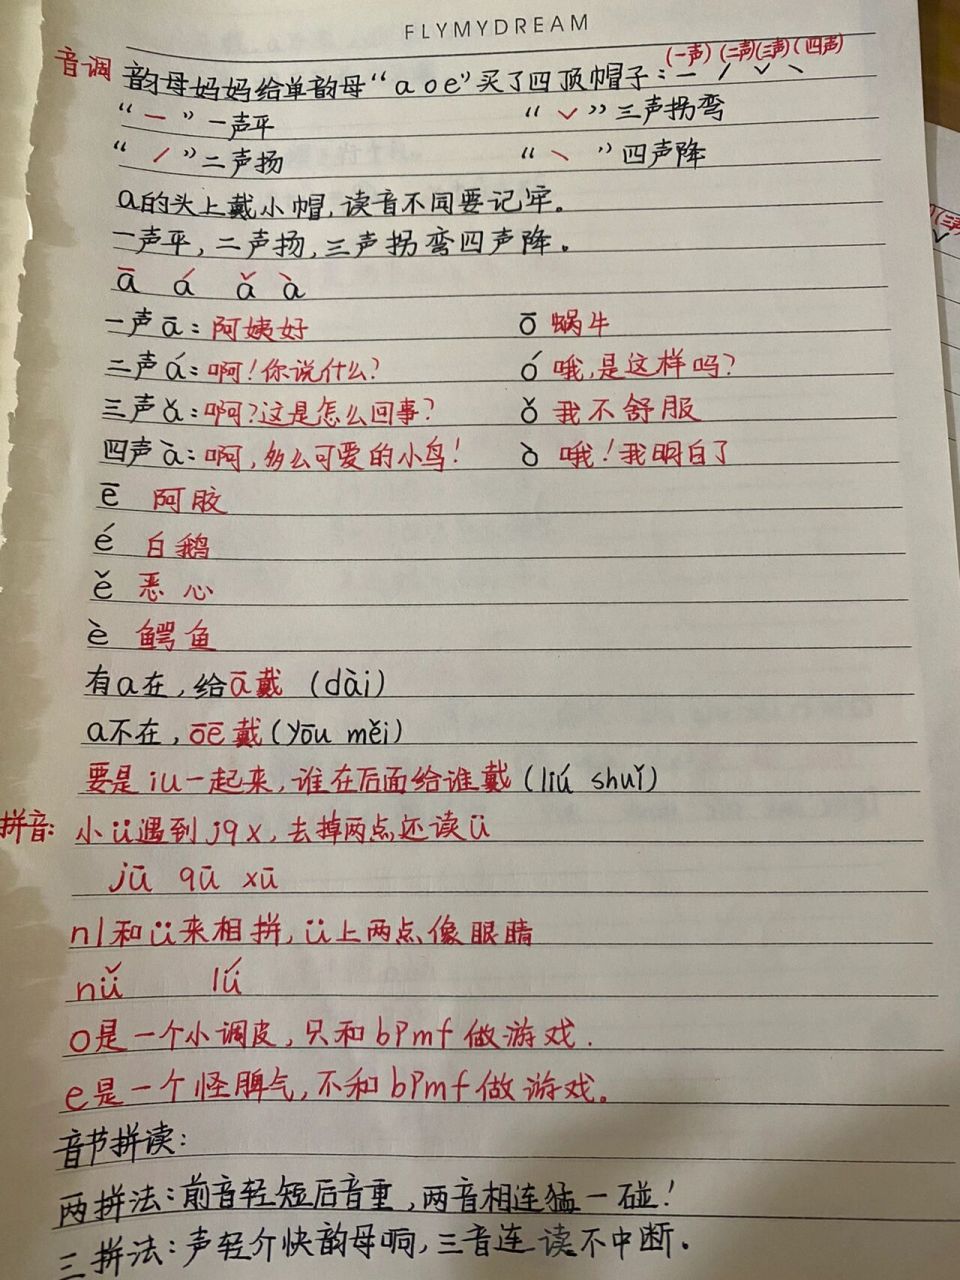 FLYMYDREAM
(一声)(二声)(三声)(四声)
音调 韵母妈妈给单韵母“a o e”买了四顶帽子：ˉ ˊ ˇ ˋ
“ˉ”一声平 “ˇ”三声拐弯
“ˊ”二声扬 “ˋ”四声降
a的头上戴小帽,读音不同要记牢。
一声平,二声扬,三声拐弯四声降。
ā á ǎ à
一声ā：阿姨好 ō 蜗牛
二声á：啊!你说什么? ó 哦,是这样吗?
三声ǎ：啊?这是怎么回事? ǒ 我不舒服
四声à：啊,多么可爱的小鸟! ò 哦!我明白了
ē 阿胶
é 白鹅
ě 恶心
è 鳄鱼
有a在,给ā戴 (dài)
a不在,ōē戴(yōu měi)
要是iu一起来,谁在后面给谁戴(liú shuǐ)
拼音: 小ü遇到jqx,去掉两点还读ü
jū qū xū
nl和ü来相拼,ü上两点像眼睛
nǚ lǘ
o是一个小调皮,只和bpmf做游戏.
e是一个怪脾气,不和bpmf做游戏。
音节拼读:
两拼法:前音轻短后音重,两音相连猛一碰!
三拼法:声轻介快韵母响,三音连读不中断.